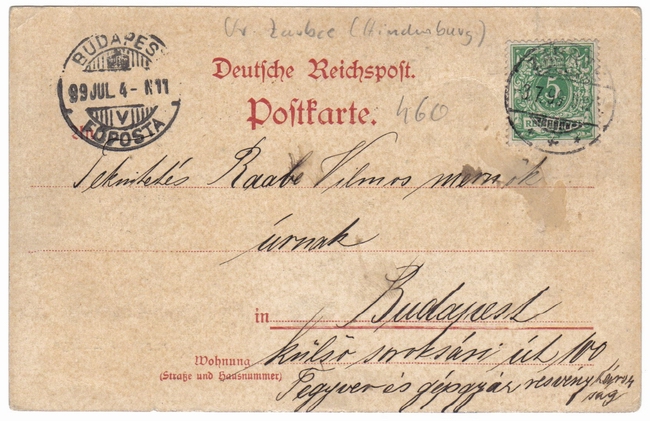 Kr. Zaubcc (Hindenburg)
BUDAPEST
99 JUL. 4 - N11
V
FŐPOSTA
Deutsche Reichspost.
Postkarte.
460
5
REICHSPOST
Tekintetés Raabe Vilmos mérnök
úrnak
in Budapest
Wohnung
(Straße und Hausnummer)
külső soroksári út 100
Fegyver és gépgyár részvény
ság